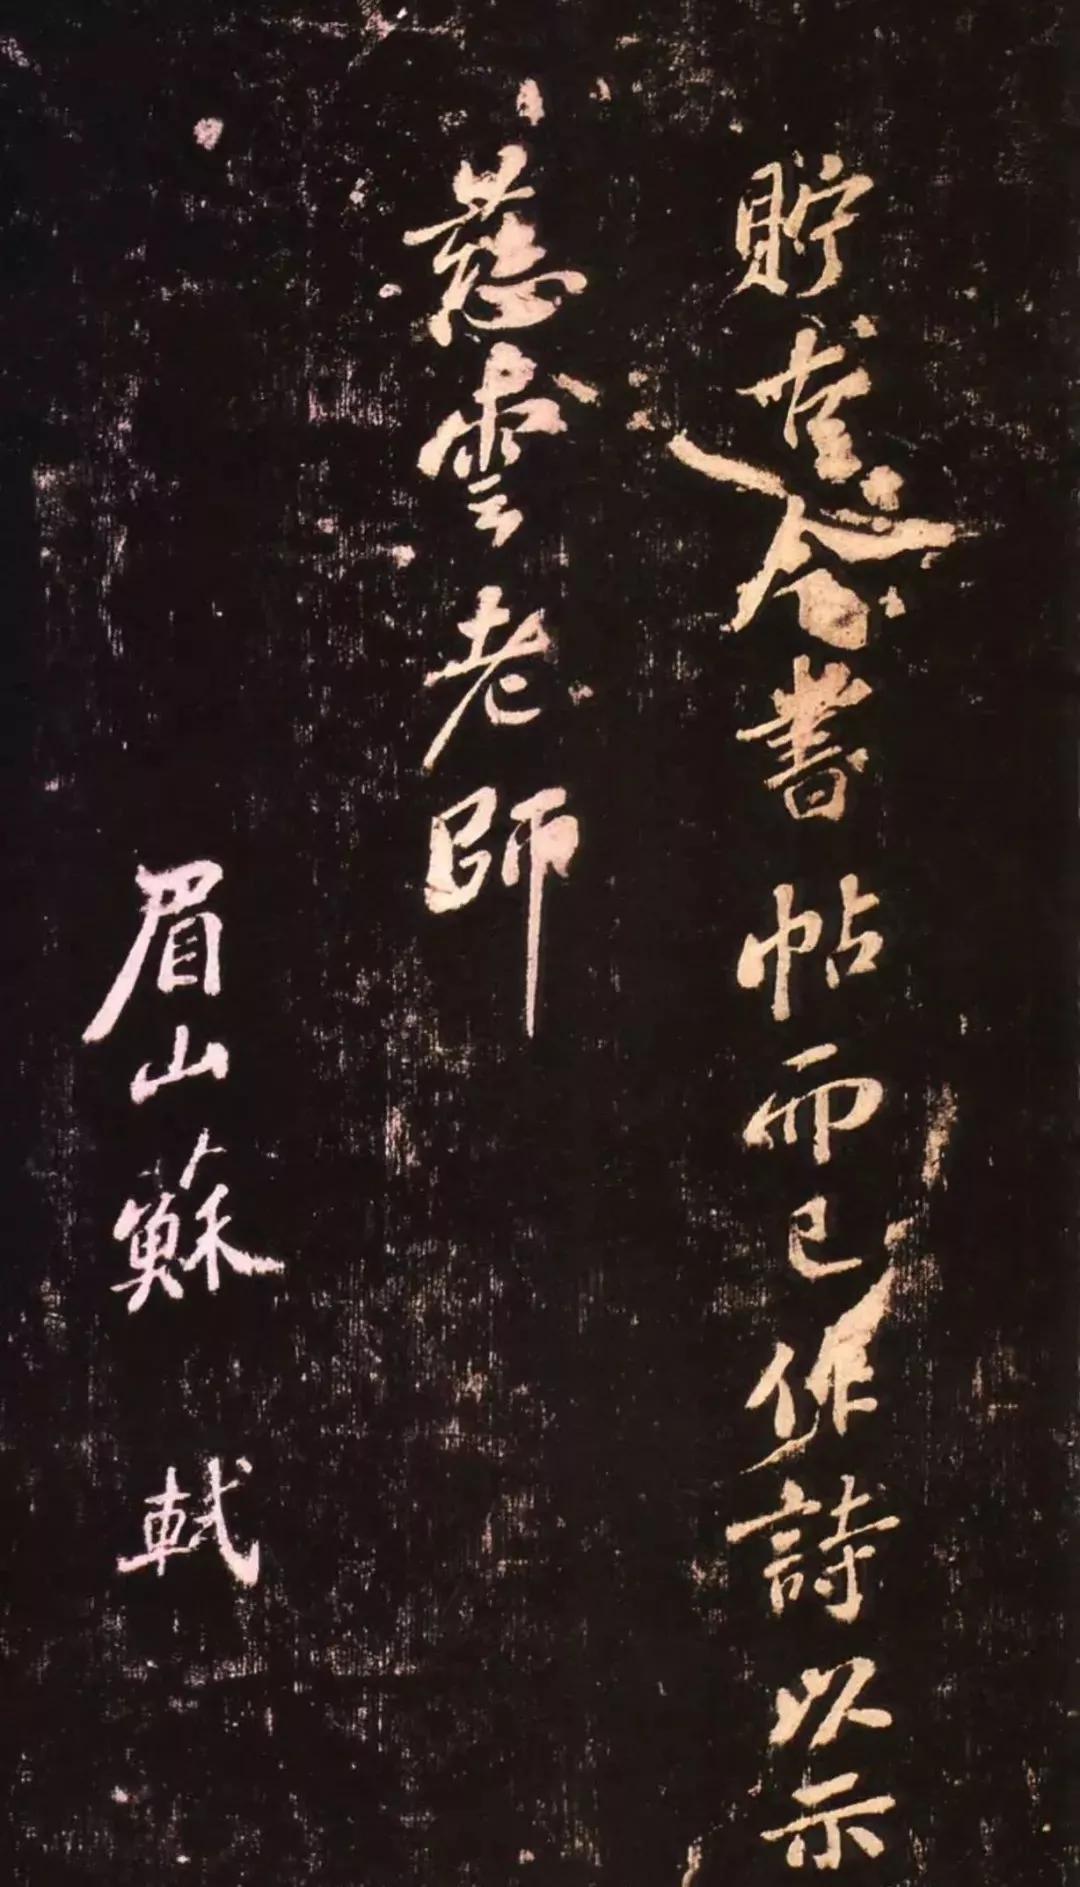 貯今書帖而已作詩以示
慈雲老師
眉山蘇軾